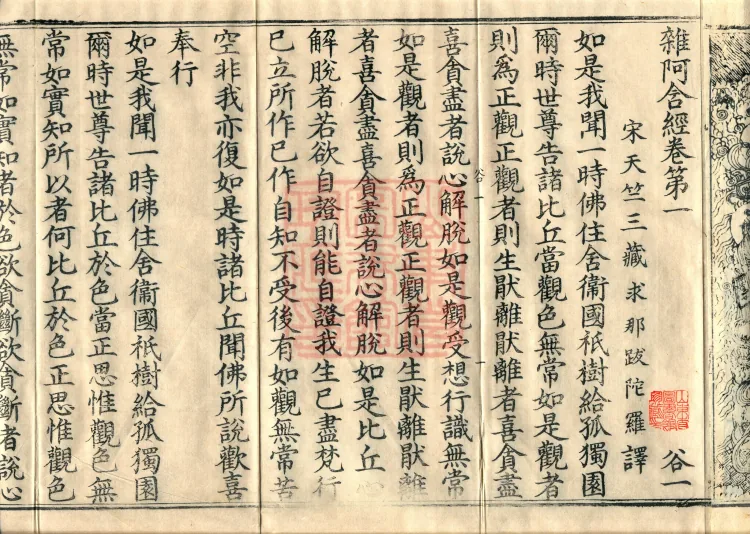 雜阿含經卷第一 谷一
宋天竺三藏求那跋陀羅譯
如是我聞一時佛住舍衛國祇樹給孤獨園
爾時世尊告諸比丘當觀色無常如是觀者
則為正觀正觀者則生猒離猒離者喜貪盡
谷一 一
喜貪盡者說心解脫如是觀受想行識無常
如是觀者則為正觀正觀者則生猒離猒離
者喜貪盡喜貪盡者說心解脫如是比丘心
解脫者若欲自證則能自證我生已盡梵行
已立所作已作自知不受後有如觀無常苦
空非我亦復如是時諸比丘聞佛所說歡喜
奉行
如是我聞一時佛住舍衛國祇樹給孤獨園
爾時世尊告諸比丘於色當正思惟觀色無
常如實知所以者何比丘於色正思惟觀色
無常如實知者於色欲貪斷欲貪斷者說心